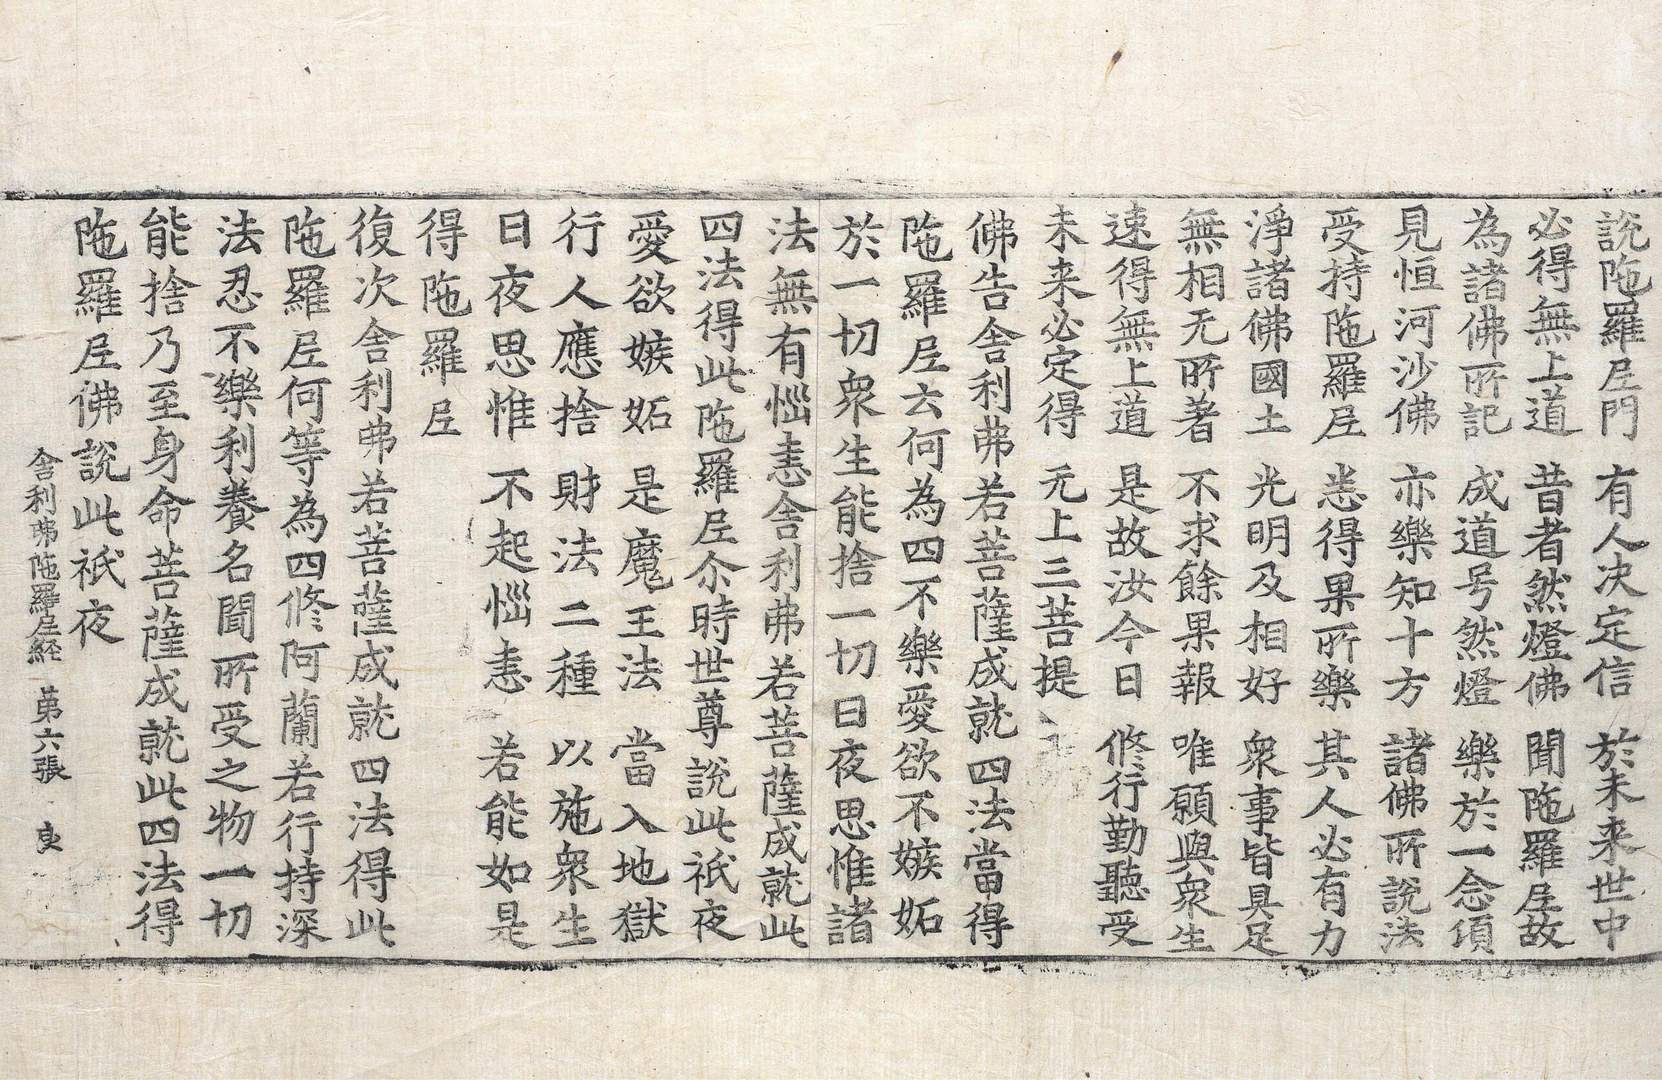 說陁羅𡰱門　有人决定信　於未来世中
必得無上道　昔者然燈佛　聞陁羅𡰱故
為諸佛所記　成道号然燈　樂於一念頃
見恒河沙佛　亦樂知十方　諸佛所說法
受持陁羅𡰱　悉得果所樂　其人必有力
淨諸佛國土　光明及相好　衆事皆具足
無相无所著　不求餘果報　唯願與衆生
速得無上道　是故汝今日　修行勤聽受
未来必定得　无上三菩提
佛告舍利弗若菩薩成就四法當得
陁羅𡰱云何為四不樂愛欲不嫉妬
於一切衆生能捨一切日夜思惟諸
法無有惱恚舍利弗若菩薩成就此
四法得此陁羅𡰱尒時世尊說此祇夜
愛欲嫉妬　是魔王法　當入地獄
行人應捨　財法二種　以施衆生
日夜思惟　不起惱恚　若能如是
得陁羅𡰱
復次舍利弗若菩薩成就四法得此
陁羅𡰱何等為四修阿蘭若行持深
法忍不樂利養名聞所受之物一切
能捨乃至身命菩薩成就此四法得
陁羅𡰱佛說此祇夜
舍利弗陁羅𡰱経　第六張　良